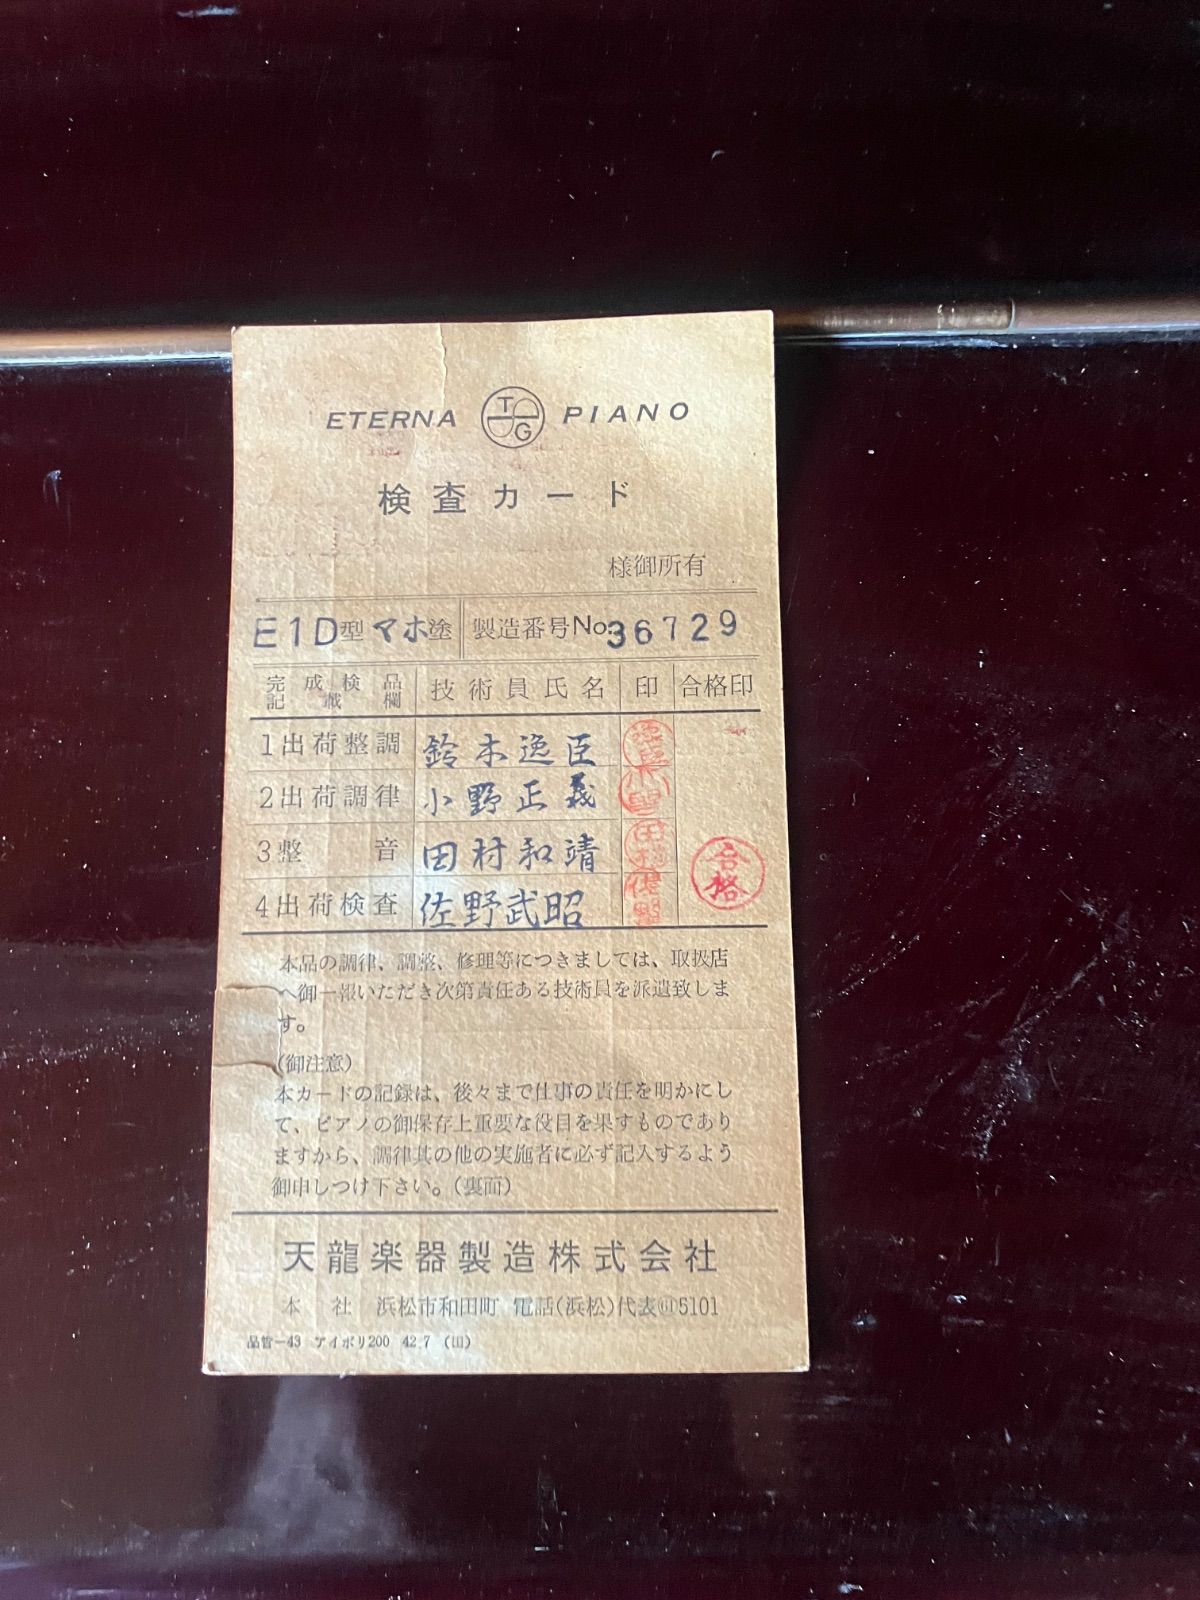 ETERNA TG PIANO
検査カード
様御所有
E1D型 マホ塗 製造番号No. 36729
完成検品記載欄 技術員氏名 印 合格印
1出荷整調 鈴木逸臣
2出荷調律 小野正義
3整音 田村和靖
4出荷検査 佐野武昭
合格
本品の調律、調整、修理等につきましては、取扱店
へ御一報いただき次第責任ある技術員を派遣致しま
す。
(御注意)
本カードの記録は、後々まで仕事の責任を明かにし
て、ピアノの御保存上重要な役目を果すものであり
ますから、調律其の他の実施者に必ず記入するよう
御申しつけ下さい。(裏面)
天龍楽器製造株式会社
本社 浜松市和田町 電話(浜松)代表㉖5101
品管-43 アイボリ200 42.7